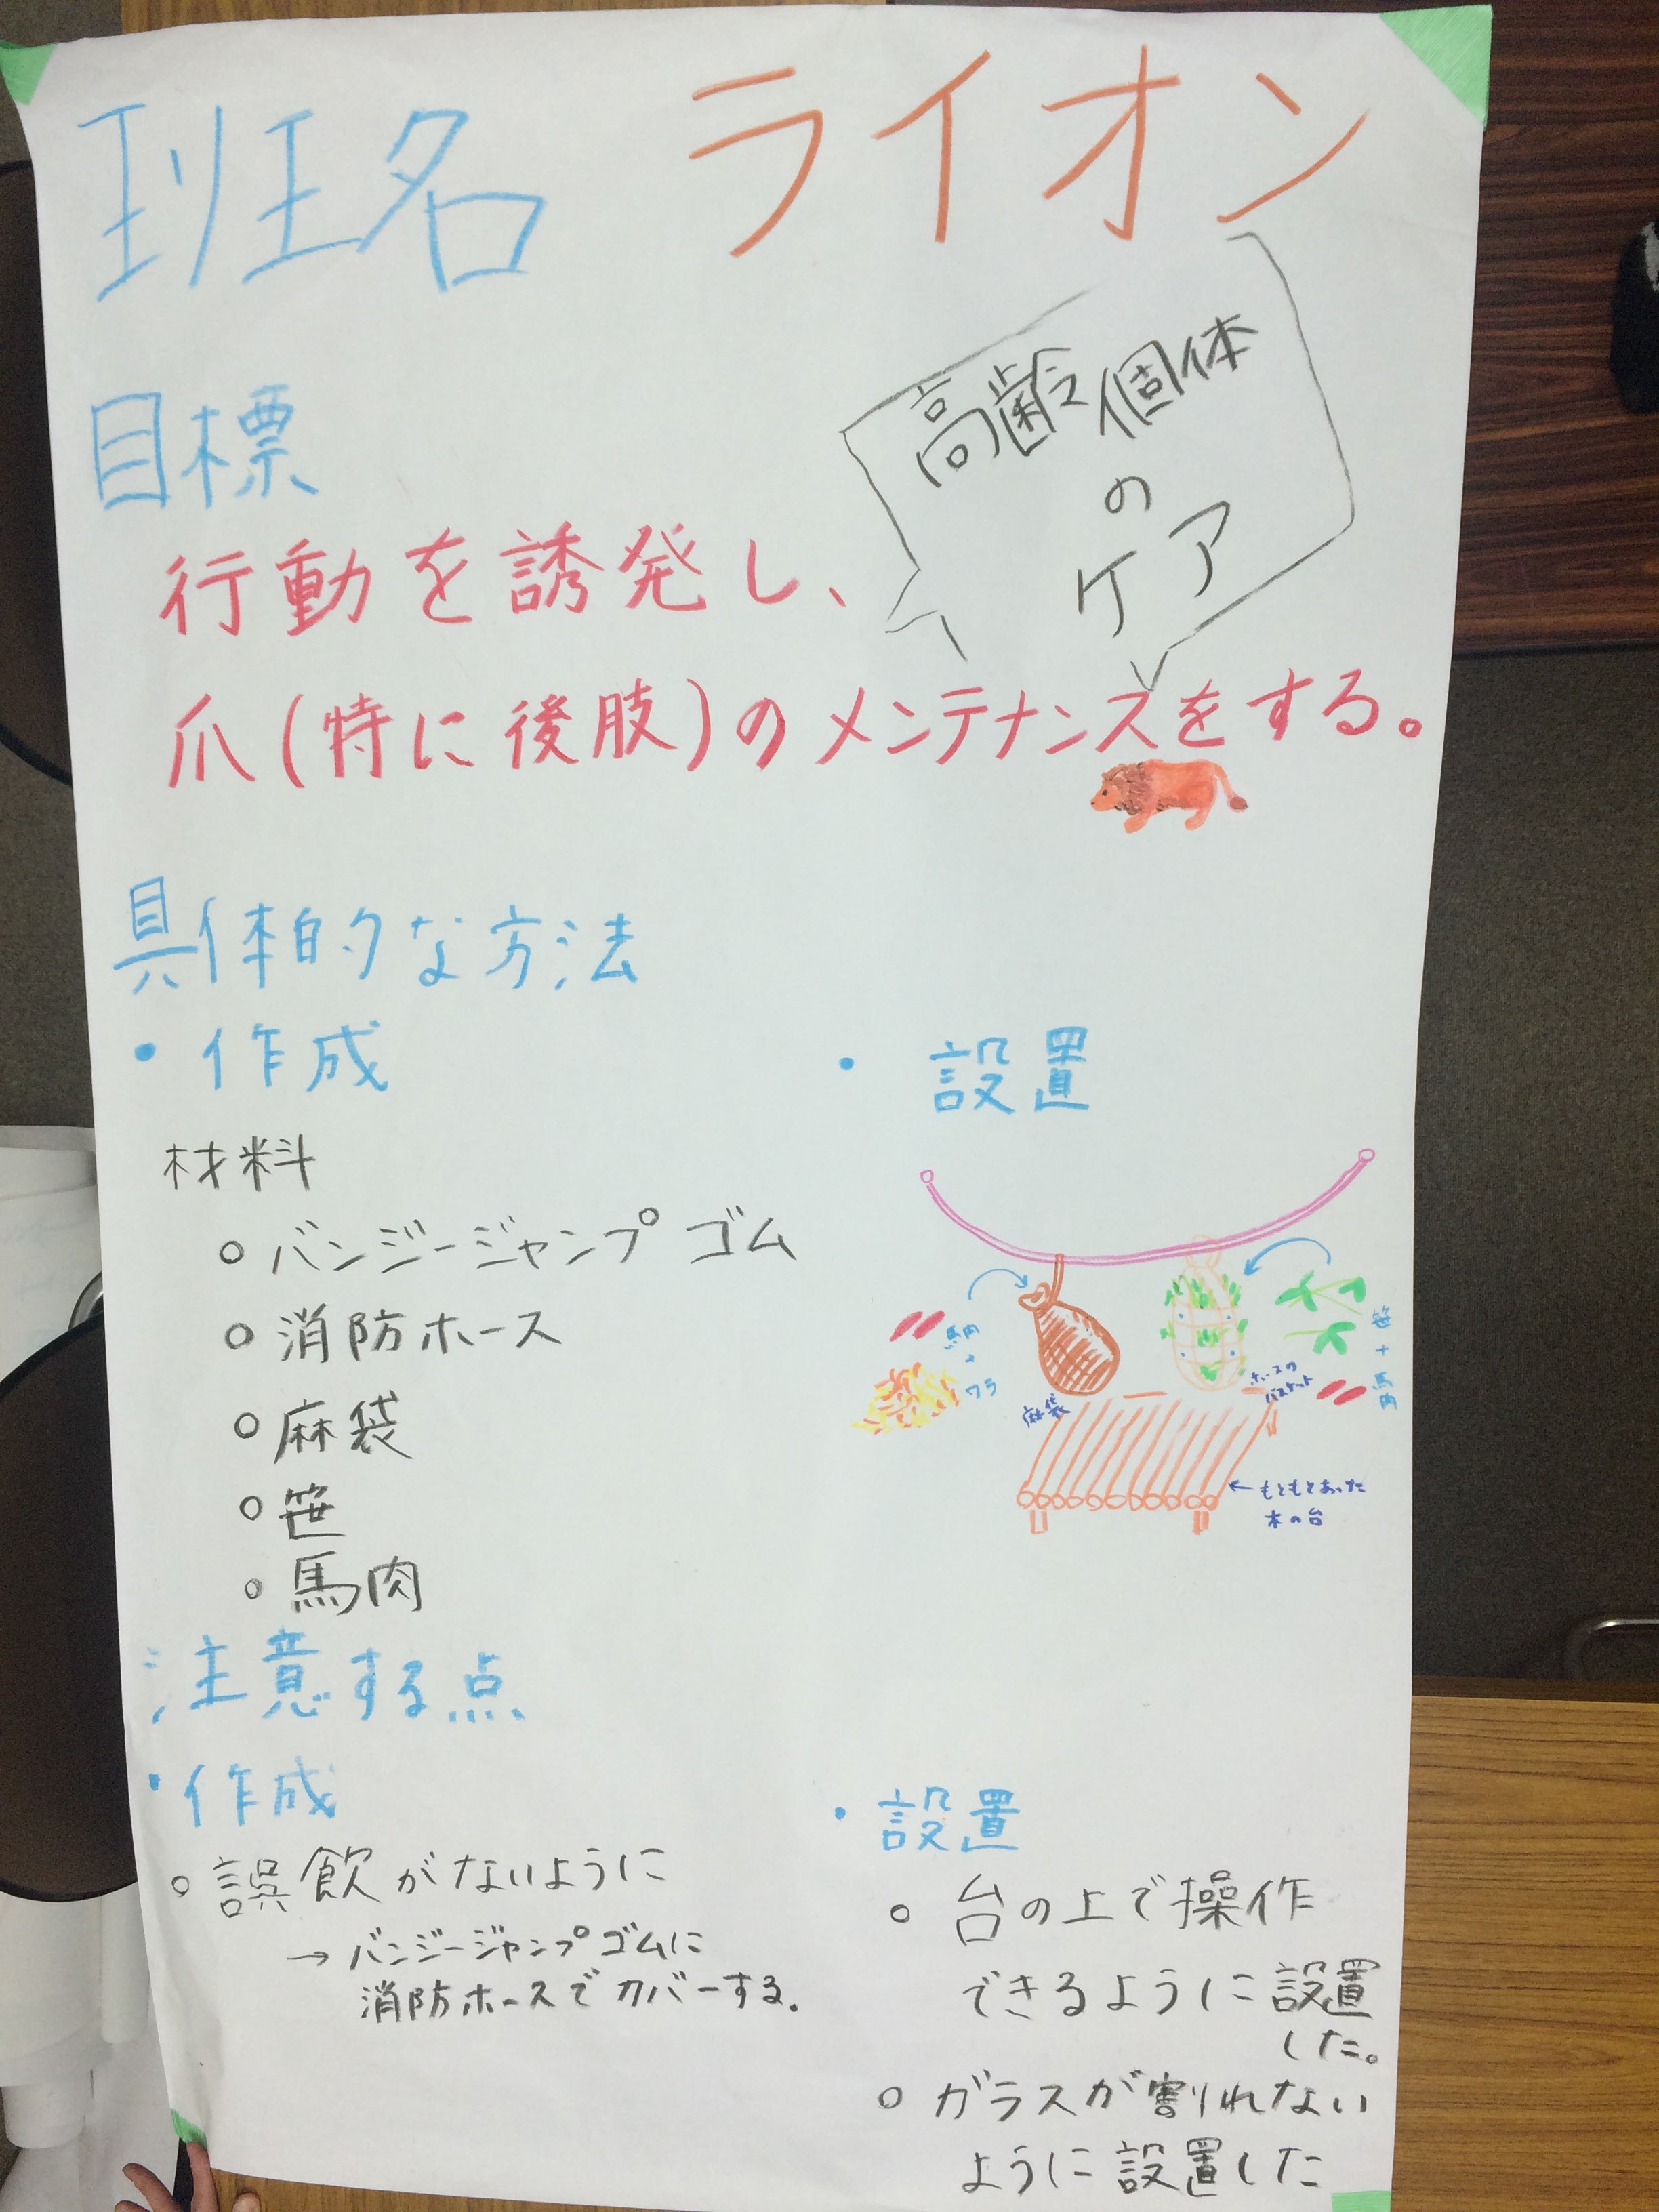 班名 ライオン
高齢個体
の
ケア
目標
行動を誘発し、
爪(特に後肢)のメンテナンスをする。
具体的な方法
・作成
材料
○バンジージャンプゴム
○消防ホース
○麻袋
○笹
○馬肉
・設置
馬肉+ワラ
麻袋
ホースの
バスケット
笹+馬肉
←もともとあった
木の台
注意する点
・作成
○誤飲がないように
→バンジージャンプゴムに
消防ホースでカバーする。
・設置
○台の上で操作
できるように設置
した。
○ガラスが割れない
ように設置した